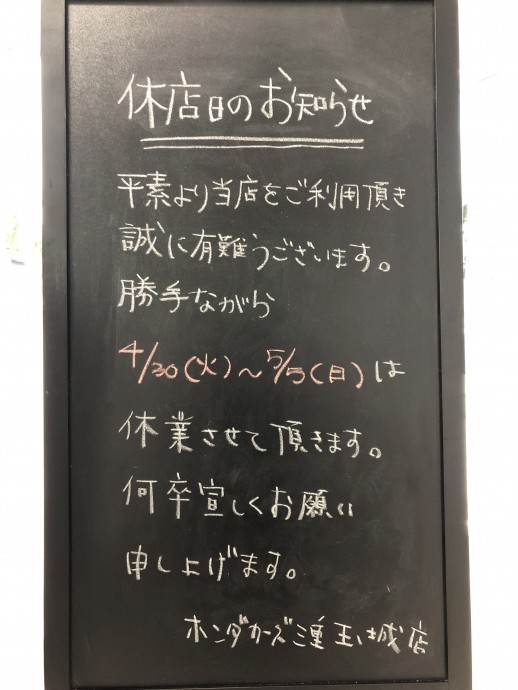 休店日のお知らせ
平素より当店をご利用頂き
誠に有難うございます。
勝手ながら
4/30(火)～5/5(日)は
休業させて頂きます。
何卒宜しくお願い
申し上げます。
ホンダカーズ三重 玉城店